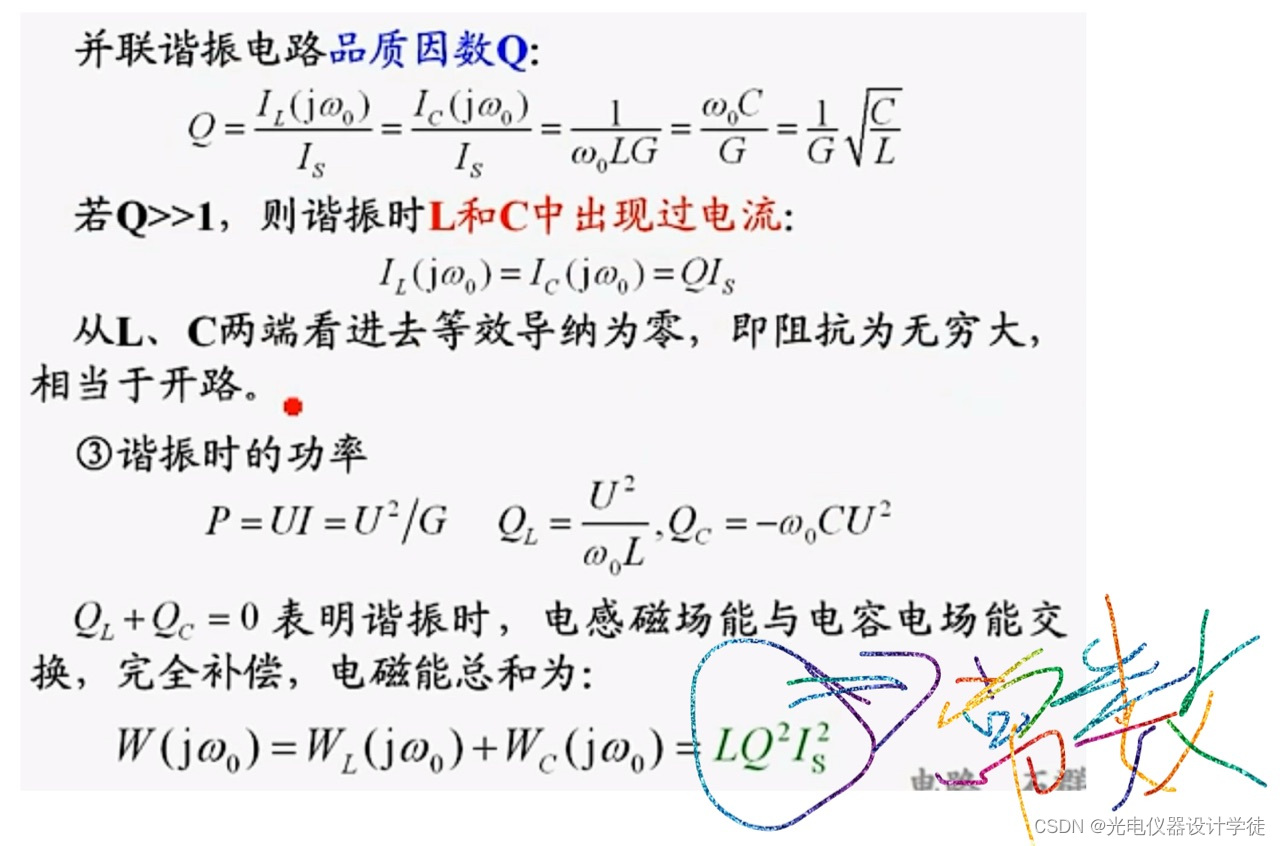 并联谐振电路品质因数Q:
Q = I_L(jω₀)/I_S = I_C(jω₀)/I_S = 1/(ω₀LG) = ω₀C/G = (1/G)√(C/L)
若Q>>1，则谐振时L和C中出现过电流:
I_L(jω₀) = I_C(jω₀) = QI_S
从L、C两端看进去等效导纳为零，即阻抗为无穷大，
相当于开路。
③谐振时的功率
P = UI = U²/G Q_L = U²/(ω₀L), Q_C = −ω₀CU²
Q_L + Q_C = 0 表明谐振时，电感磁场能与电容电场能交
换，完全补偿，电磁能总和为:
W(jω₀) = W_L(jω₀) + W_C(jω₀) = LQ²I_S²
常数
CSDN @光电仪器设计学徒